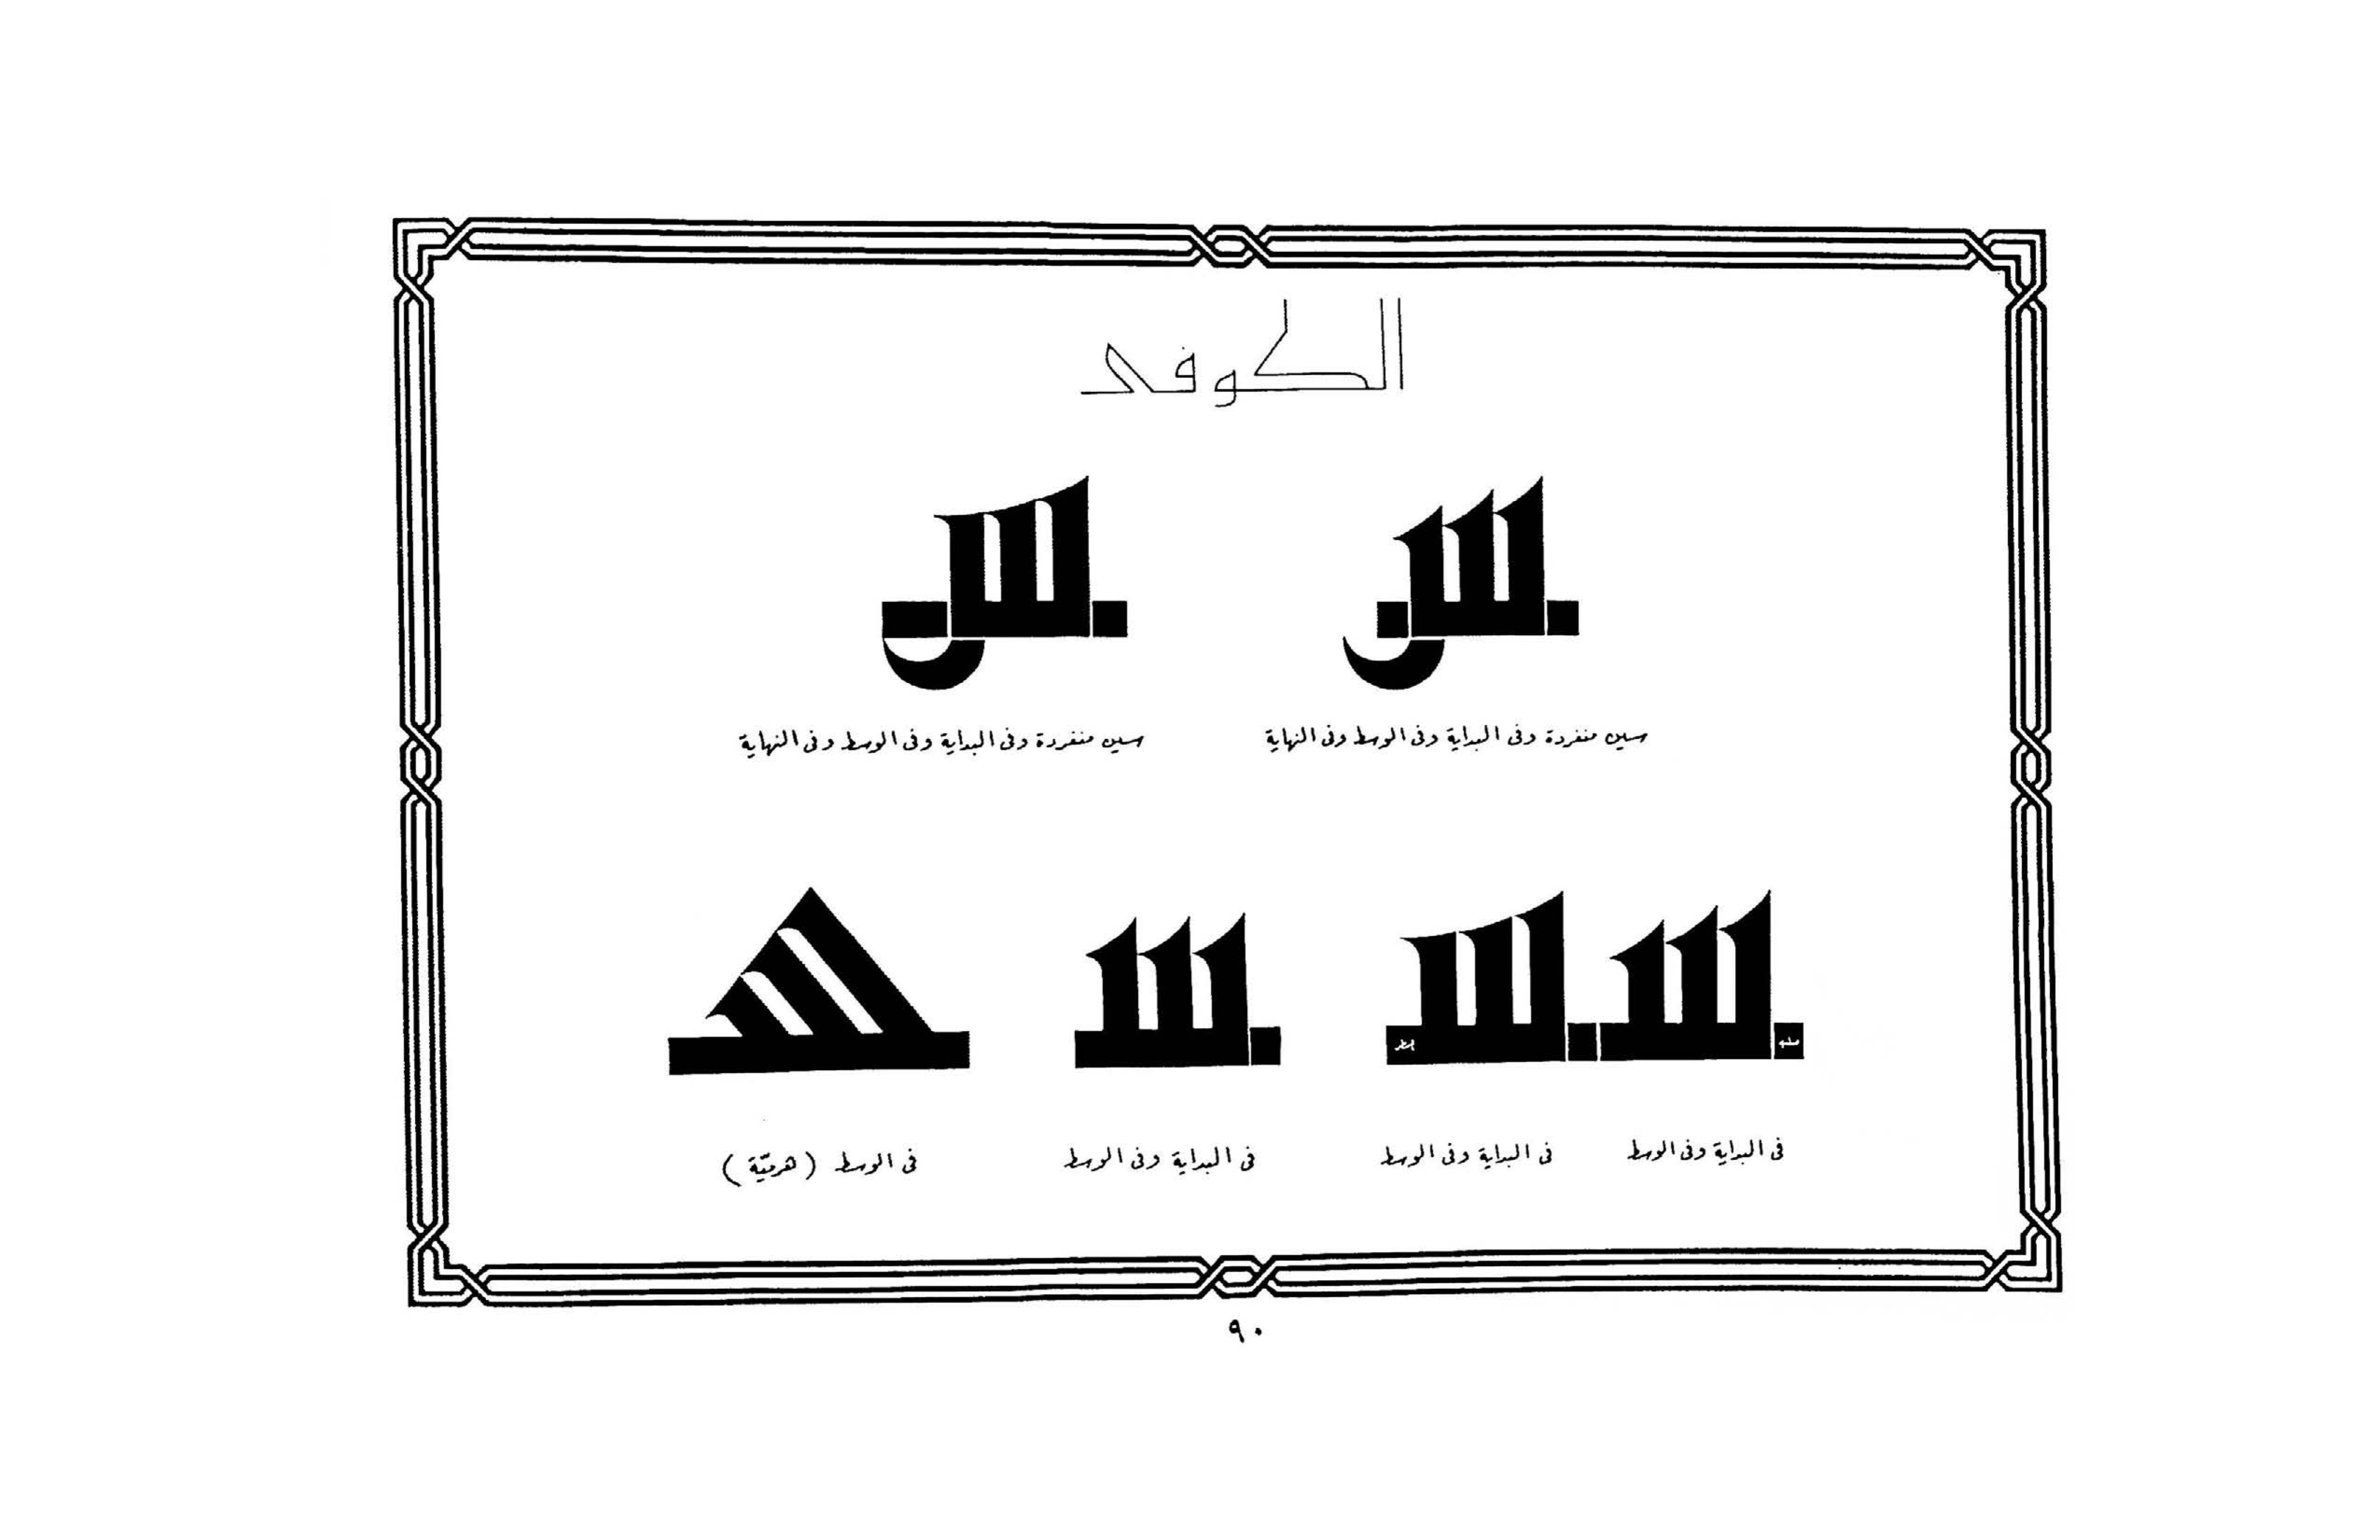 الكوفى
سين منفردة وفى البداية وفى الوسط وفى النهاية
سين منفردة وفى البداية وفى الوسط وفى النهاية
فى البداية وفى الوسط
فى البداية وفى الوسط
فى البداية وفى الوسط
فى الوسط (هرميّة)
٩٠